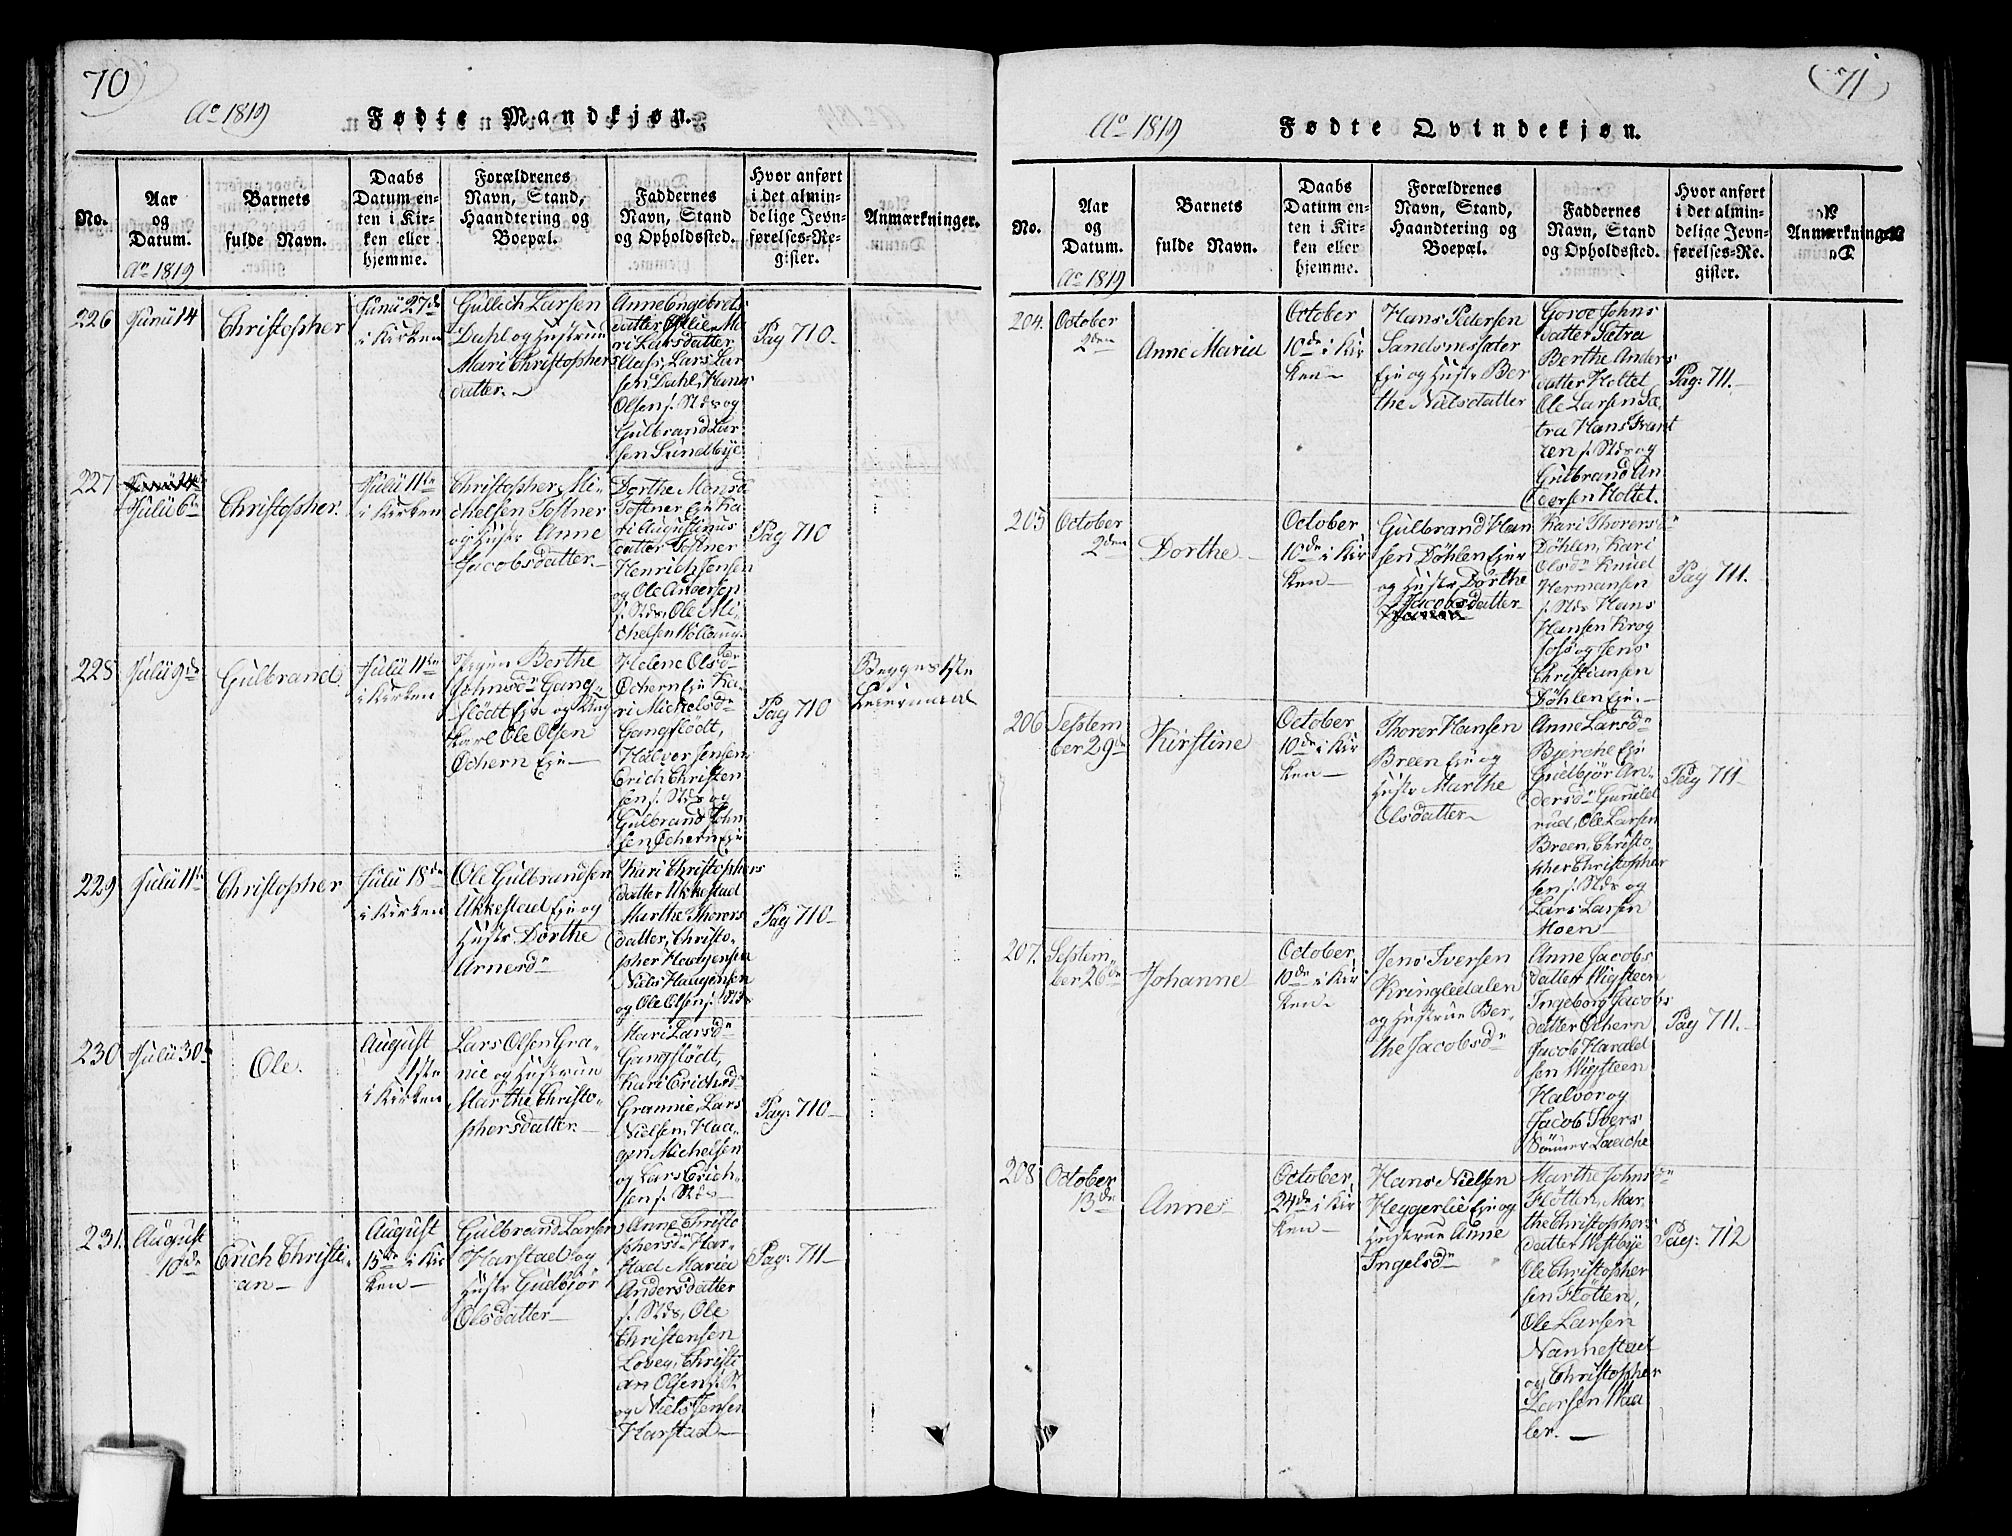 70
Ao 1819
Fødte Mandkjøn.
No.
Aar
og
Datum.
Barnets
fulde Navn.
Daabs
Datum en-
ten i Kir-
ken eller
hjemme.
Forældrenes
Navn, Stand,
Haandtering og
Boepæl.
Faddernes
Navn, Stand
og Opholdssted.
Hvor anført
i det almin-
delige Jevn-
førelses-Re-
gister.
Anmærkninger.
Ao 1819
226
Junii 14
Christopher
Junii 27de
i Kirken
Gullich Larsen
Dahl og Hustrue
Mari Christophers
datter.
Anne Engebrets
datter Ma
ri Larsdatter
Lars Lar
sen Dahl, Hans
Olsen s. Stds og
Gulbrand Lar
sen Sundbye
Pag 710.
227
Julii 6te
Christopher.
Julii 11te
i Kirken
Christopher Mi-
chelsen Tostner
og Hustr Anne
Jacobsdatter.
Dorthe Monsd
Tostner Eje Ka
ri Augustinus
datter Tostner
Henrich Jensen
og Ole Andersen
s. Stds, Ole Mi-
chelsen
Pag 710
228
Julii 9de
Gulbrand
Julii 11te
i Kirken
Pigen Berthe
Johnsdr Gang-
flödt Eje og Ung
karl Ole Olsen
Ochern Eje
Helene Olsdr
Ochern Eje Ka-
ri Mickelsdr
Gangflödt,
Halvor Jensen
Erich Christen
sen s. Stds og
Gulbrand John
sen Ochern Eje
Pag 710
Begges 1ste
Leiermaal
229
Julii 11te
Christopher
Julii 18de
i Kirken
Ole Gulbrandsen
Ukkestad Eje og
Hustr Dorthe
Arnesdr
Kari Christophers
datter Ukkestad
Marthe Thorers
datter, Christo-
pher Haagensen
Niels Haagensen
og Ole Olsen s. Stds
Pag 710
230
Julii 30te
Ole.
August
1ste
i Kirken
Lars Olsen Gra-
nie og Hustrue
Marthe Christo-
phersdatter
Mari Larsdr
Gangflödt,
Kari Erichsd
Grannie, Lars
Nielsen, Haa-
gen Michelsen
og Lars Erich-
sen s. Stds
Pag. 710
231.
August
10de
Erich Christi-
an
August
15de i Kir
ken
Gulbrand Larsen
Harstad og
Hustr Gudbjör
Olsdatter
Anne Christo
phersdr Har-
stad Maria
Andersdatter
s. Stds, Ole
Christensen
Loveg, Christi
an Olsen s. St
og Niels Jensen
Harstad
Pag. 711
71
Ao 1819
Fødte Qvindekjøn.
No.
Aar
og
Datum.
Barnets
fulde Navn.
Daabs
Datum en-
ten i Kir-
ken eller
hjemme.
Forældrenes
Navn, Stand,
Haandtering og
Boepæl.
Faddernes
Navn, Stand
og Opholdssted.
Hvor anført
i det almin-
delige Jevn-
førelses-Re-
gister.
Anmærkninger
Ao 1819
204.
October
2den
Anne Maria
October
10de i Kir
ken
Hans Pedersen
Sandsnessæter
Eje og Hustr Ber
the Nielsdatter
Goroe Johns
datter Sætra
Berthe Anders
datter Holtet
Ole Larsen Sæ-
tra Hans Frant
zen s. Stds og
Gulbrand An
dersen Holtet.
Pag: 711.
205
October
2den
Dorthe
October
10de i Kir
ken
Gulbrand Han
sen Döhlen Eje
og Hustr Dorthe
Jacobsdatter
Kari Thorersdr
Döhlen, Kari
Olsdr Knud
Hermansen
s. Stds Hans
Hansen Krog
foss og Jens
Christiansen
Döhlen Eje.
Pag 711.
206
Septem
ber 29de
Kirstine
October
10de i Kir
ken
Thorer Hansen
Breen Eje og
Hustr Marthe
Olsdatter
Anne Larsdr
Bjerche Eje
Gudbjör An-
dersdr Gunild
rud, Ole Larsen
Breen, Christo-
pher Christopher
sen s. Stds og
Lars Larsen
Moen
Pag 711
207.
Septem-
ber 26de
Johanne
October
10de i Kir
ken
Jens Iversen
Kringledalen
og Hustrue Ber-
the Jacobsdr
Anne Jacobs
datter Wigsteen
Ingeborg Jacobs
datter Ochern
Jacob Harald
sen Wigsteen
Halvor og
Jacob Ivers
Sönner Laache
Pag 711.
208
October
13de
Anne
October
24de i Kir
ken
Hans Nielsen
Heggerlie Eje og
Hustrue Anne
Ingelsdr
Marthe Johnsdr
Flötten, Mar-
the Christophers
datter Westbye
Ole Christopher
sen Flötten,
Ole Larsen
Nannestad
og Christopher
Larsen Waa
ler.
Pag: 712